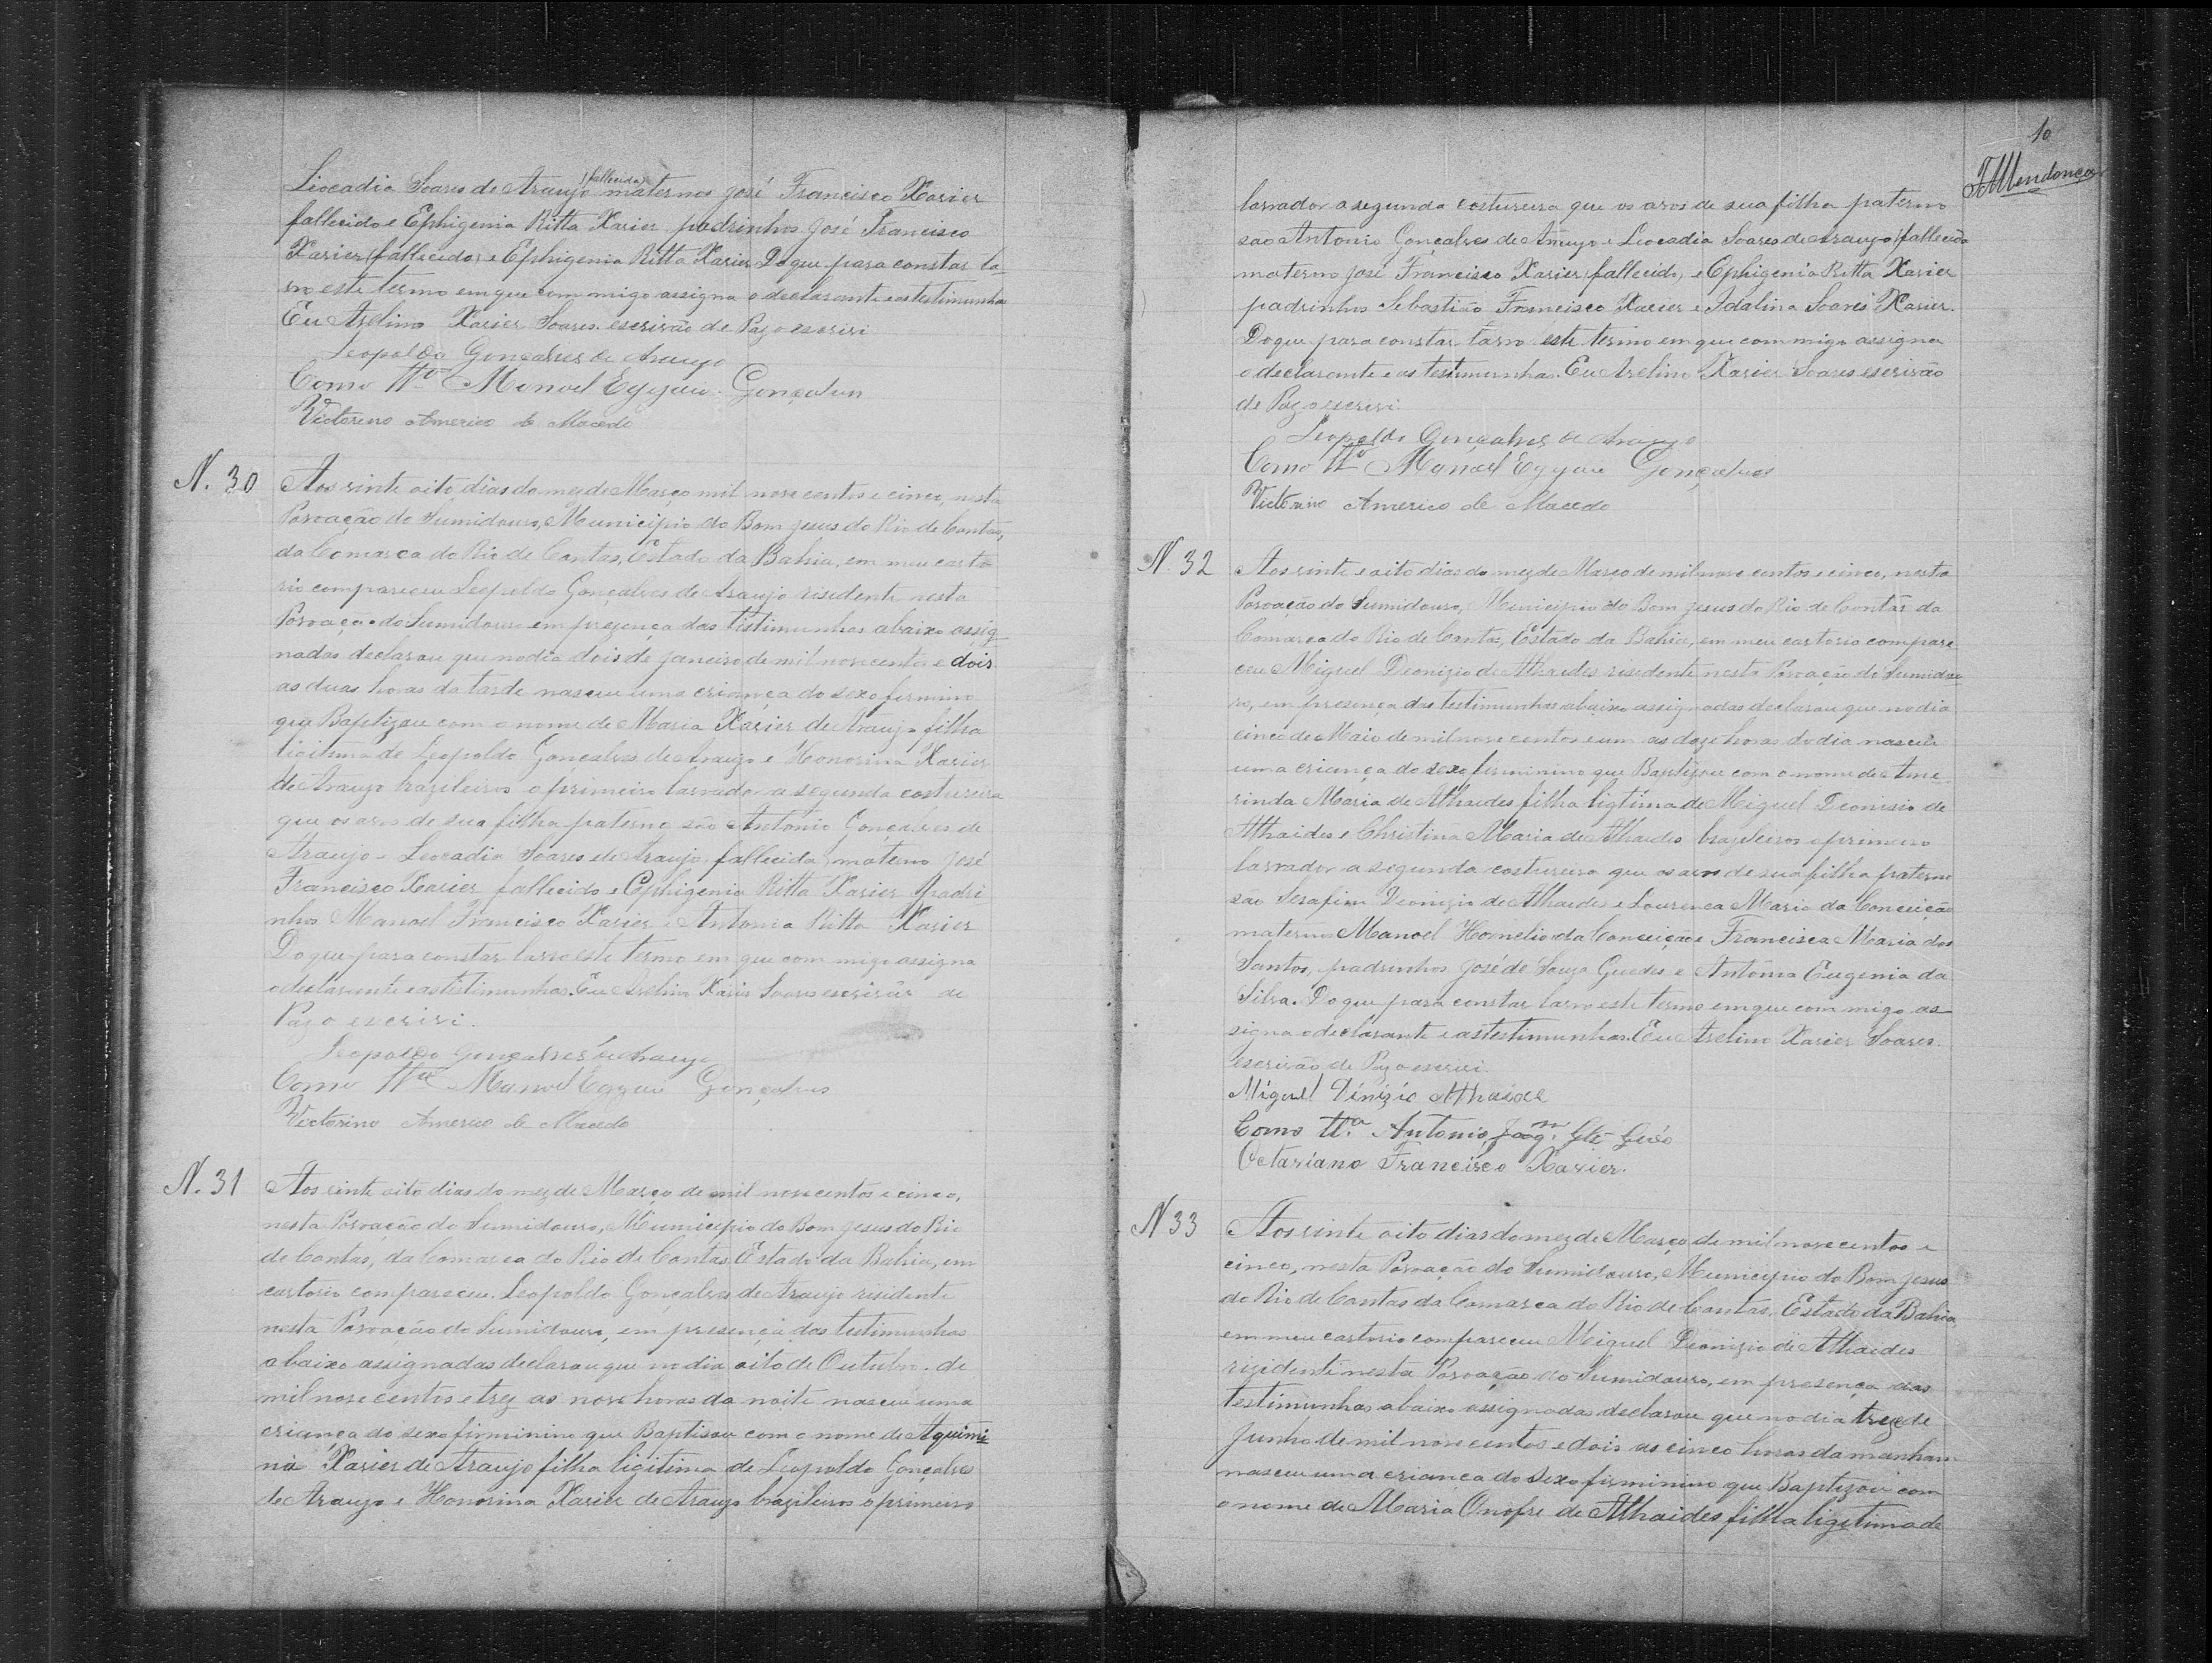 Liocadia Soares de Araujo (fallecida) maternos José Francisco Xavier
fallecido e Ephigenia Ritta Xavier padrinhos José Francisco
Xavier (fallecido) e Ephigenia Ritta Xavier Do que para constar la
vro este termo em que com migo assigna o declarante e as testimunhas
Eu Avelino Xavier Soares escrivão de Paz o escrivi
Leopoldo Gonçalves de Araujo
Como tta Manoel Gonçalves
Victorino Americo de Macedo
N. 30
Aos vinte oito dias do mez de Março mil nove centos e cinco, nesta
Povoação do Sumidouro, Municipio do Bom Jesus do Rio de Contas,
da Comarca do Rio de Contas, Estado da Bahia, em meu carto
rio compareceu Leopoldo Gonçalves de Araujo risidente nesta
Povoação do Sumidouro em prezença das tistimunhas abaixo assig
nadas declarou que no dia dois de Janeiro de mil nove centos e dois
as duas horas da tarde nasceu uma criança do sexo firmino
que Baptizou com o nome de Maria Xavier de Araujo filha
ligitima de Leopoldo Goncalves de Araujo e Honorina Xavier
de Araujo brazileiros o primeiro lavrador a segunda costureira
que os avos de sua filha paterno são Antonio Gonçalves de
Araujo e Leocadia Soares de Araujo, fallecida) materno José
Francisco Xavier fallecido e Ephigenia Ritta Xavier Padri
nhos Manoel Francisco Xavier e Antonia Ritta Xavier
Do que para constar lavro este termo em que com migo assigna
o declarante e as testimunhas. Eu Avelino Xavier Soares escrivão de
Paz o escrivi.
Leopoldo Gonçalves de Araujo
Como tta Manoel Gonçalves
Victorino Americo de Macedo
N. 31
Aos vinte oito dias do mez de Março de mil nove centos e cinco,
nesta Povoação do Sumidouro, Municipio do Bom Jesus do Rio
de Contas, da Comarca do Rio de Contas, Estado da Bahia, em
cartorio compareceu Leopoldo Gonçalves de Araujo risidente
nesta Povoação do Sumidouro, em presença das testimunhas
abaixo assignadas declarou que no dia oito de Outubro de
mil nove centos e trez as nove horas da noite nasceu uma
criança do sexo firminino que Baptisou com o nome de Aquimi
na Xavier de Araujo filha ligitima de Leopoldo Gonçalves
de Araujo e Honorina Xavier de Araujo brazileiros o primeiro
10
FMMendonça
lavrador a segunda costureira que os avos de sua filha paterno
sao Antonio Gonçalves de Araujo e Leocadia Soares de Araujo (fallecida
materno José Francisco Xavier (fallecido) e Ephigenia Ritta Xavier
padrinhos Sebastião Francisco Xavier e Idalina Soares Xavier.
Do que para constar lavro este termo em que com migo assigna
o declarante e as testimunhas. Eu Avelino Xavier Soares escrivão
de Paz o escrivi
Leopoldo Gonçalves de Araujo
Como tta Manoel Gonçalves
Victorino Americo de Macedo
N. 32
Aos vinte e oito dias do mez de Março de mil nove centos e cinco, nesta
Povoação do Sumidouro, Municipio do Bom Jesus do Rio de Contas da
Comarca do Rio de Contas, Estado da Bahia, em meu cartorio compare
ceu Miguel Deonizio de Athaides risidente nesta Povoação do Sumidou
ro, em presença das testimunhas abaixo assignadas declarou que no dia
cinco de Maio de mil nove centos e um as doze horas do dia nasceu
uma criança do sexo firminino que Baptizou com o nome de Ame
rinda Maria de Athaides filha ligtima de Miguel Deonisio de
Athaides e Christina Maria de Athaides brazileiros o primeiro
lavrador a segunda costureira que os avos de sua filha paterno
são Serafim Deonizio de Athaides e Lourença Maria da Conceição
materno Manoel Hornelio da Conceição e Francisca Maria dos
Santos, padrinhos José de Souza Guedes e Antonia Eugenia da
Silva. Do que para constar lavro este termo em que com migo as
signa o declarante e as testimunhas. Eu Avelino Xavier Soares
escrivão de Paz o escrivi.
Miguel Dinizio Athaide
Como tta. Antonio Joaqm.
Octaviano Francisco Xavier.
N 33
Aos vinte oito dias do mez de Março de mil nove centos e
cinco, nesta Povoação do Sumidouro, Municipio do Bom Jesus
do Rio de Contas da Comarca do Rio de Contas, Estado da Bahia,
em meu cartorio compareceu Miguel Deonizio de Athaides
rizidente nesta Povoação do Sumidouro, em presença das
testimunhas abaixo assignadas declarou que no dia treze de
Junho de mil nove centos e dois as cinco horas da manham
nasceu uma criança do sexo firminino que Baptizou com
o nome de Maria Onofre de Athaides filha ligitima de